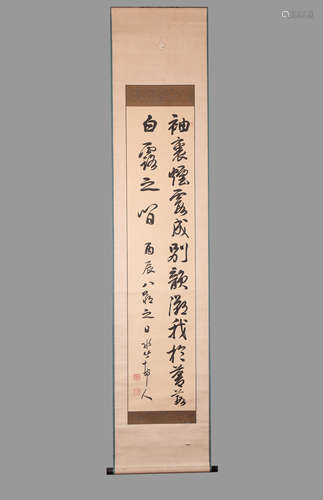 袖裏煙霞成別韻灑我於蒼葭
白露之間 丙辰八月之日 人